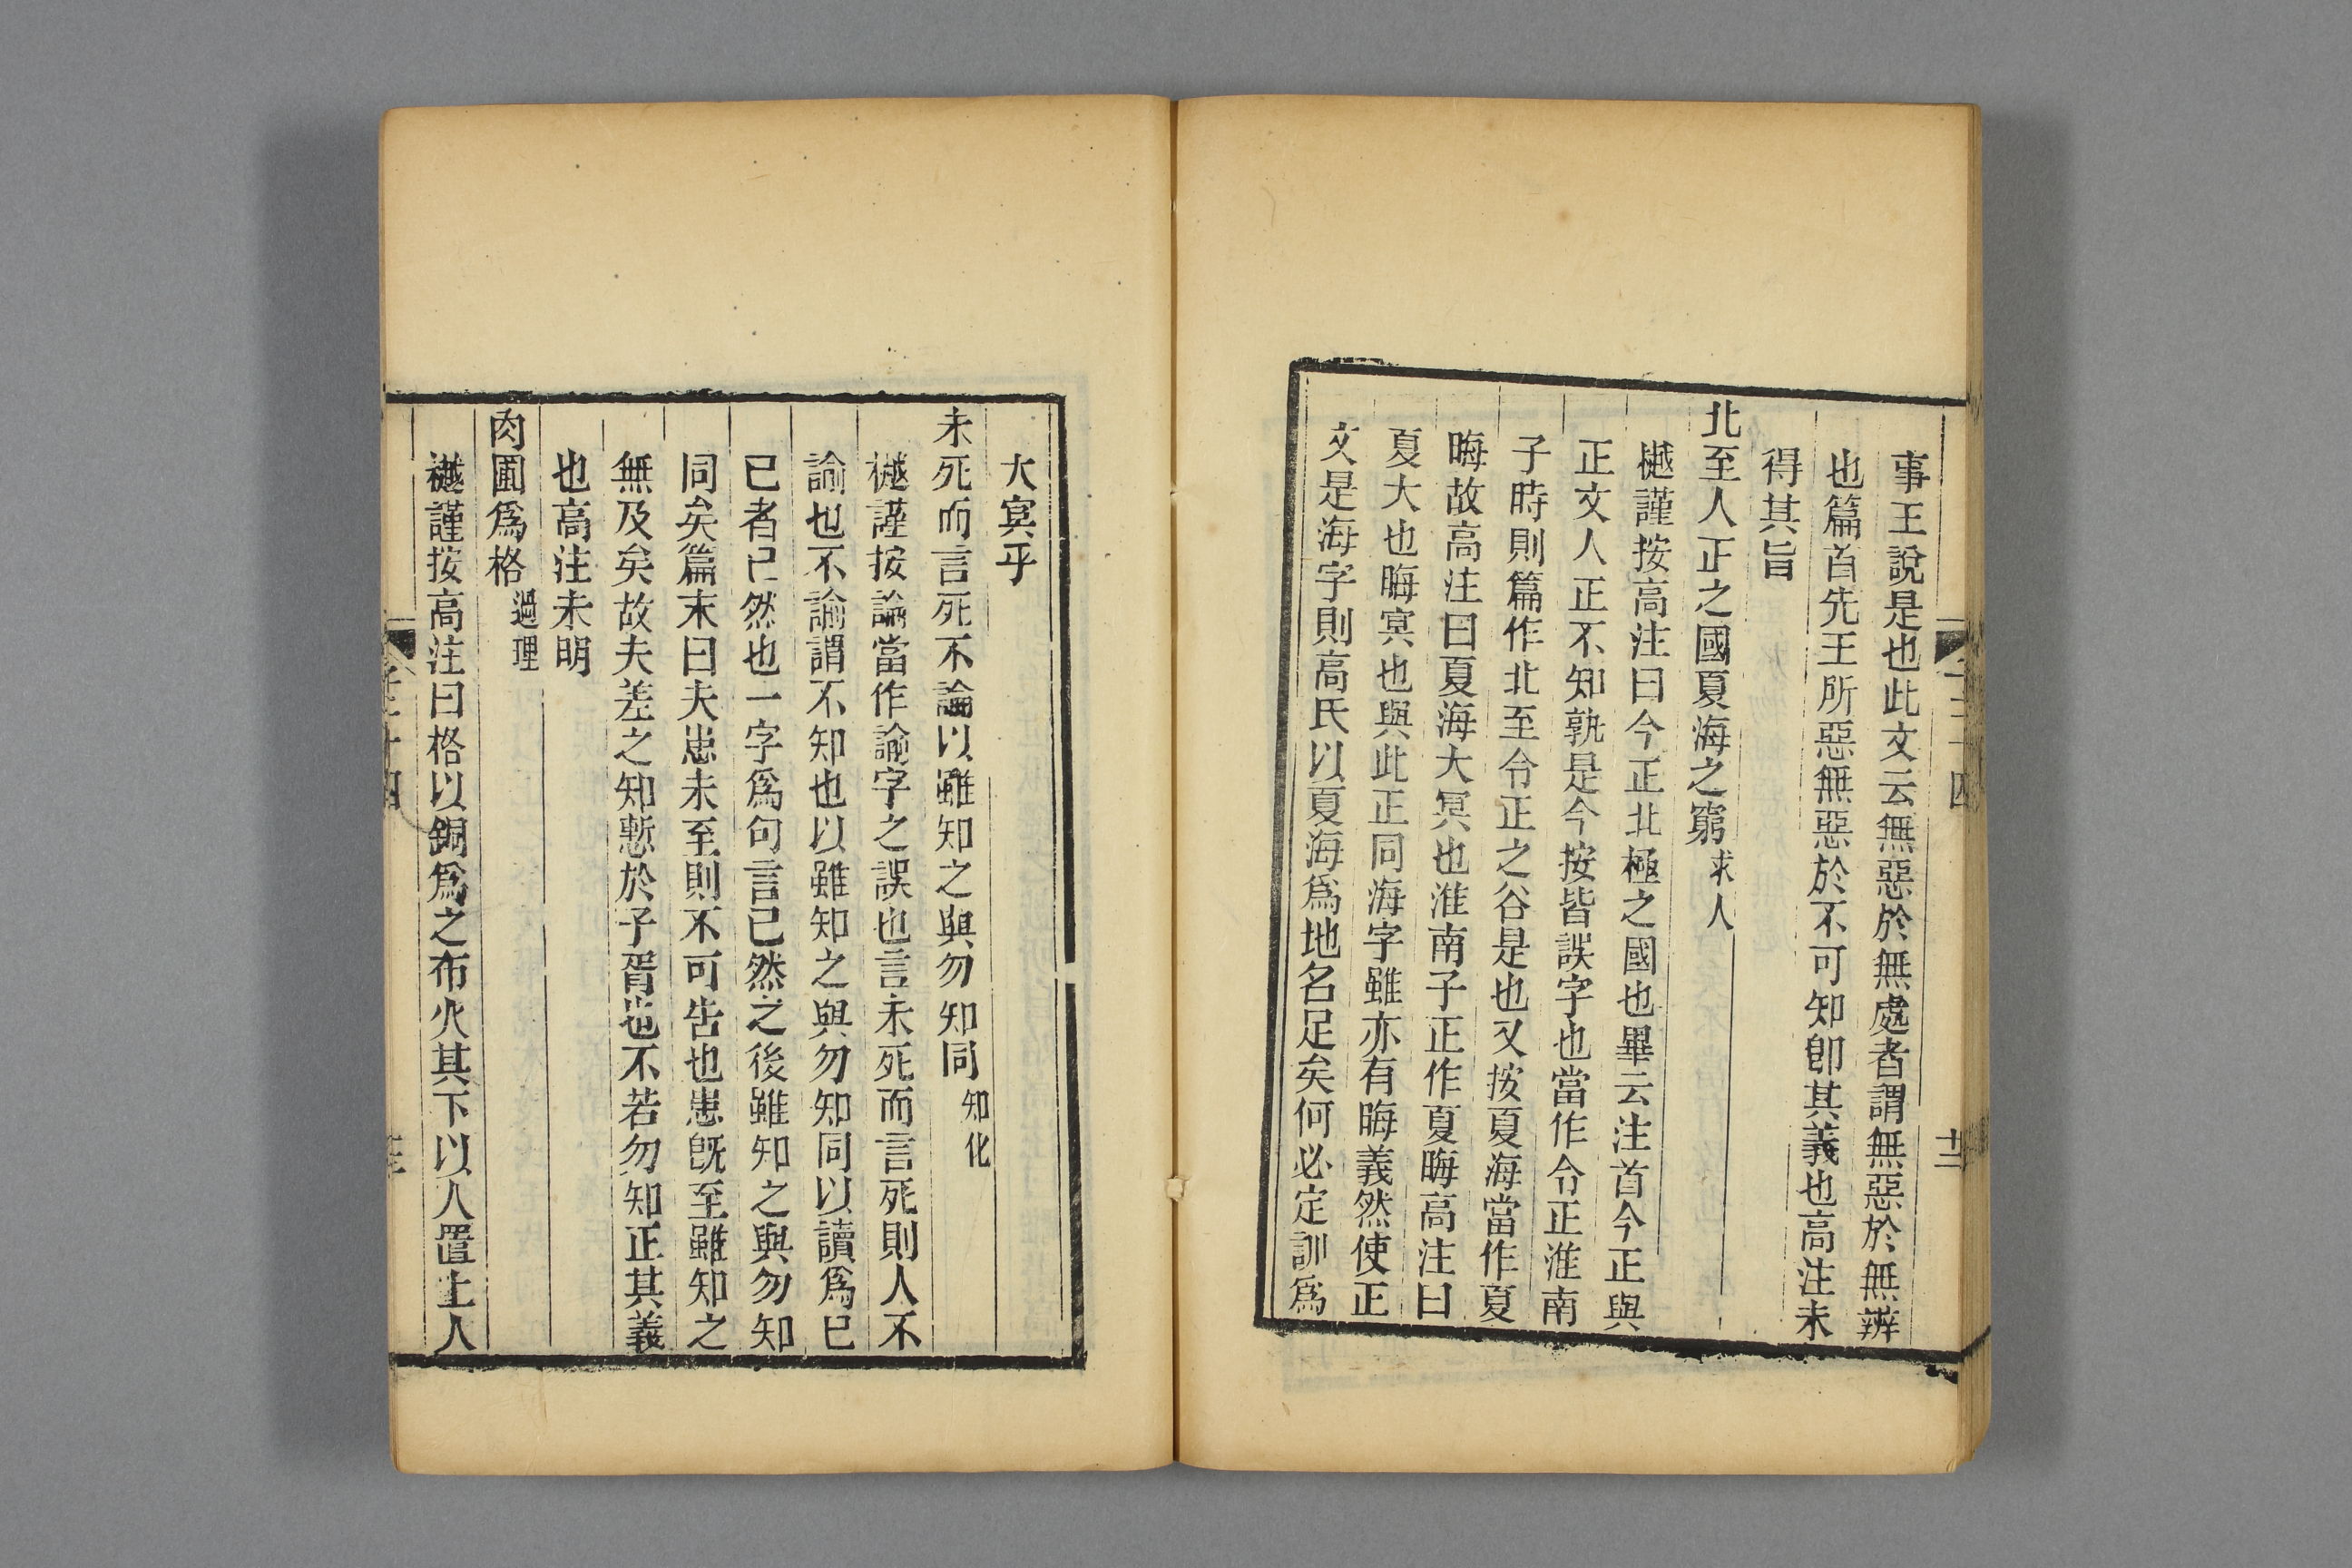 事王說是也此文云無惡於無處者謂無惡於無辨
也篇首先王所惡無惡於不可知卽其義也高注未
得其旨
北至人正之國夏海之窮求人
樾謹按高注曰今正北極之國也畢云注首今正與
正文人正不知孰是今按皆誤字也當作令正淮南
子時則篇作北至令正之谷是也又按夏海當作夏
晦故高注曰夏海大冥也淮南子正作夏晦高注曰
夏大也晦冥也與此正同海字雖亦有晦義然使正
文是海字則高氏以夏海爲地名足矣何必定訓爲
大冥乎
未死而言死不論以雖知之與勿知同知化
樾謹按論當作諭字之誤也言未死而言死則人不
諭也不諭謂不知也以雖知之與勿知同以讀爲已
已者已然也一字爲句言已然之後雖知之與勿知
同矣篇末曰夫患未至則不可告也患旣至雖知之
無及矣故夫差之知慙於子胥也不若勿知正其義
也高注未明
肉圃爲格過理
樾謹按高注曰格以銅爲之布火其下以人置上人